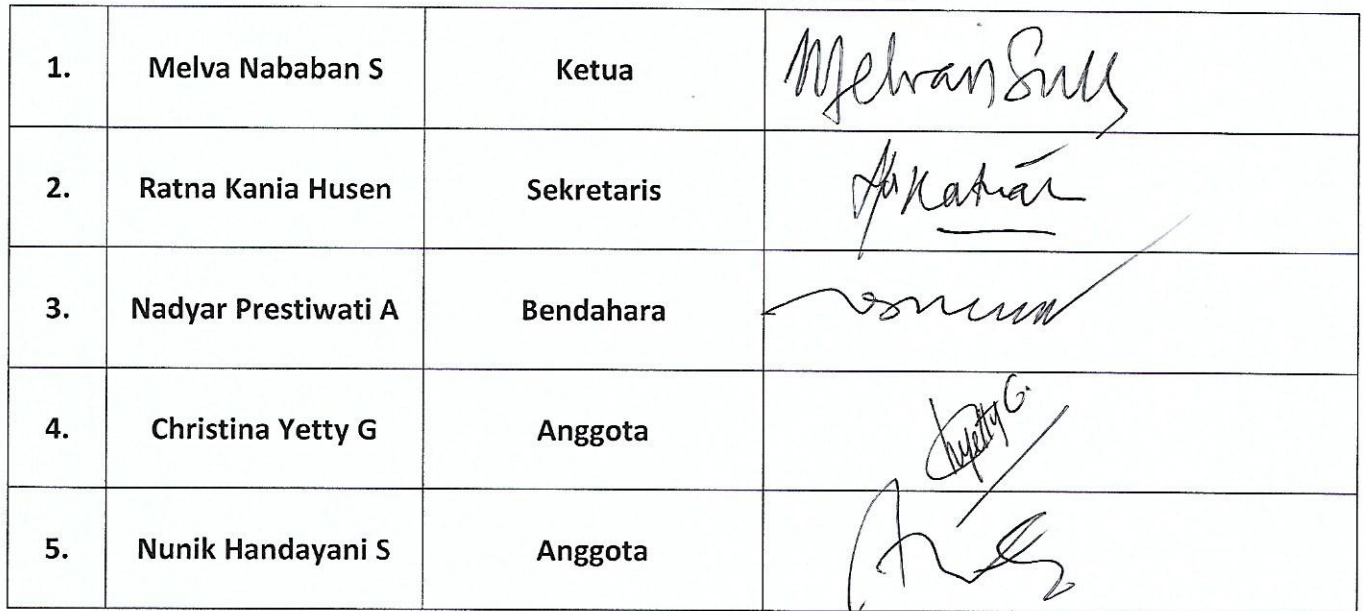 1. Melva Nababan S Ketua
2. Ratna Kania Husen Sekretaris
3. Nadyar Prestiwati A Bendahara
4. Christina Yetty G Anggota
5. Nunik Handayani S Anggota